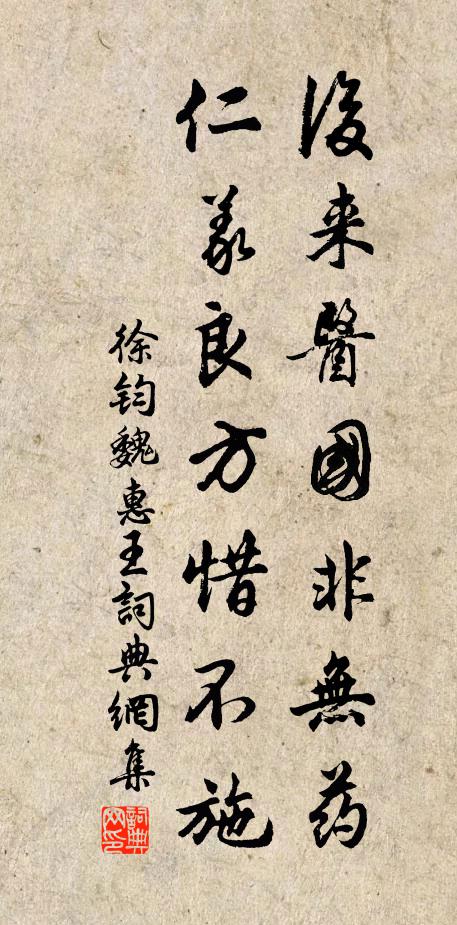 後来醫國非無药
仁義良方惜不施
徐钧魏惠王詞典網集
詞典网印